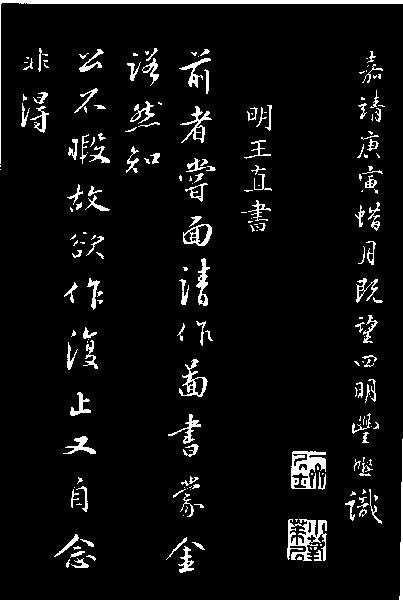 嘉靖庚寅蜡月既望四明豐熙識
明王直書
前者嘗面請作圖書蒙金
諾然知
公不暇故欲作復止又自念
非得